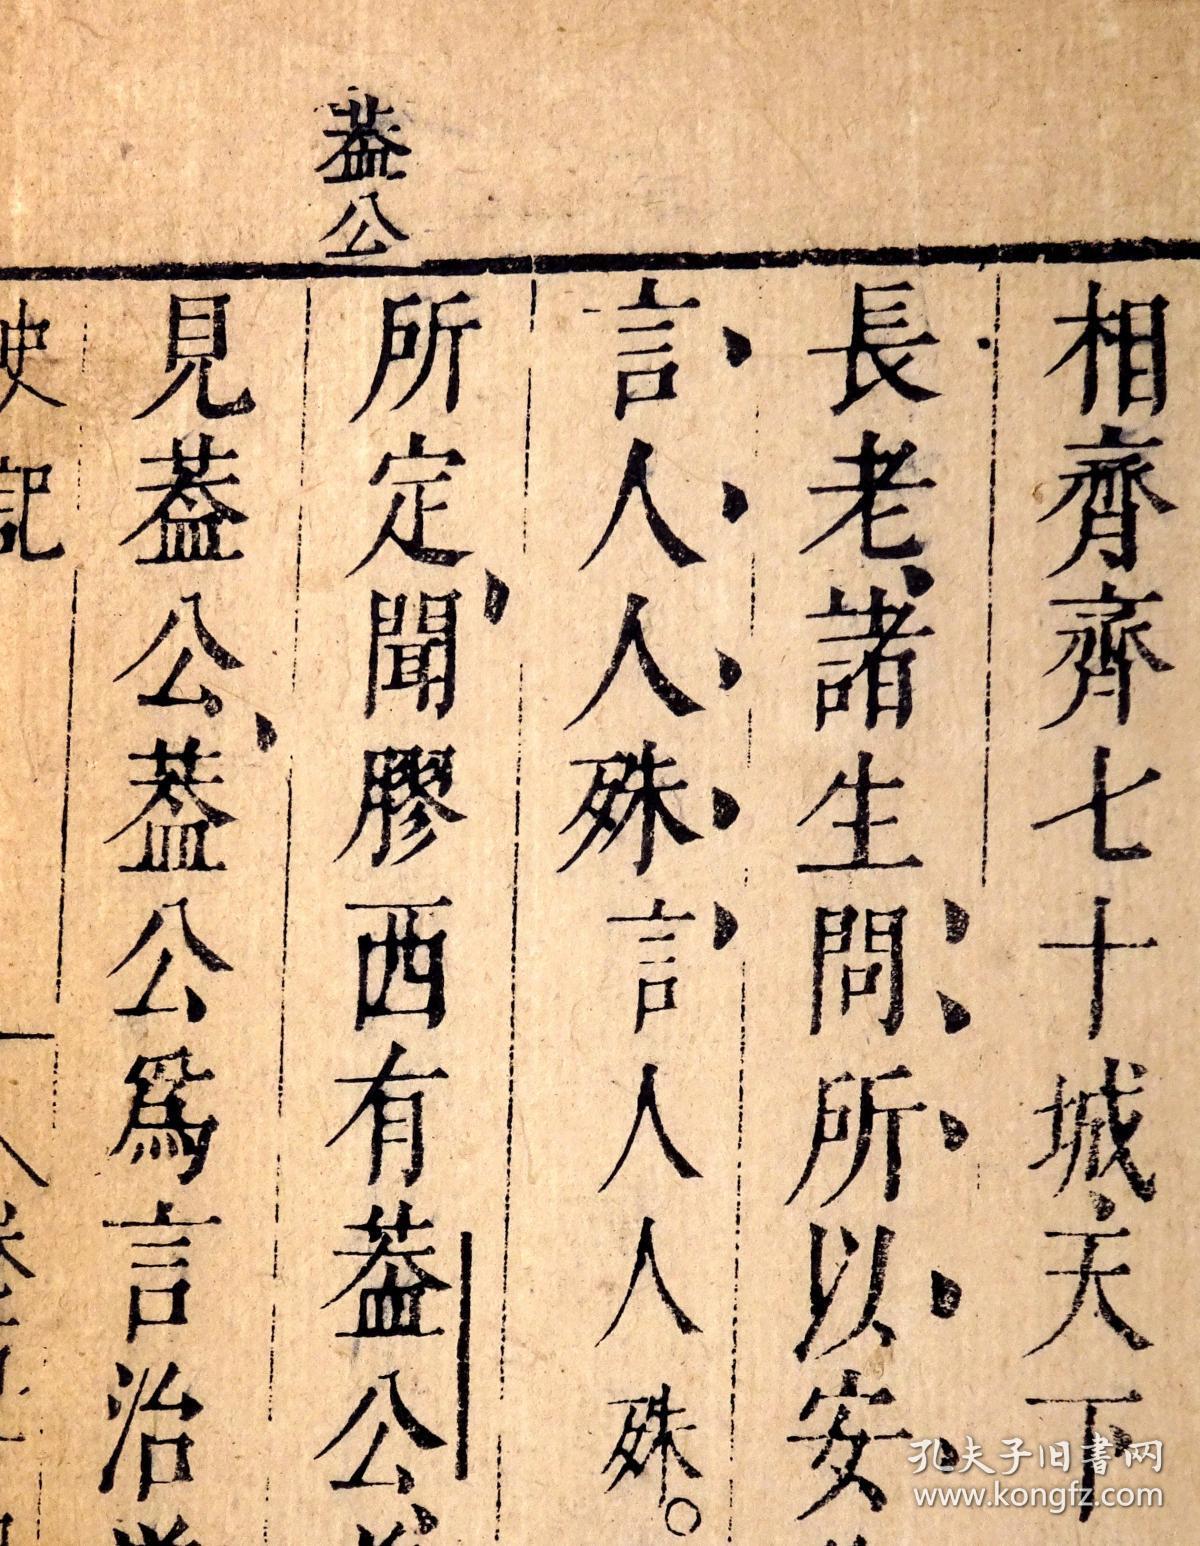 蓋公
相齊齊七十城天下
長老諸生問所以安
言人人殊言人人殊。
所定聞膠西有蓋公
見蓋公蓋公爲言治
史記
孔夫子旧書网
www.kongfz.com